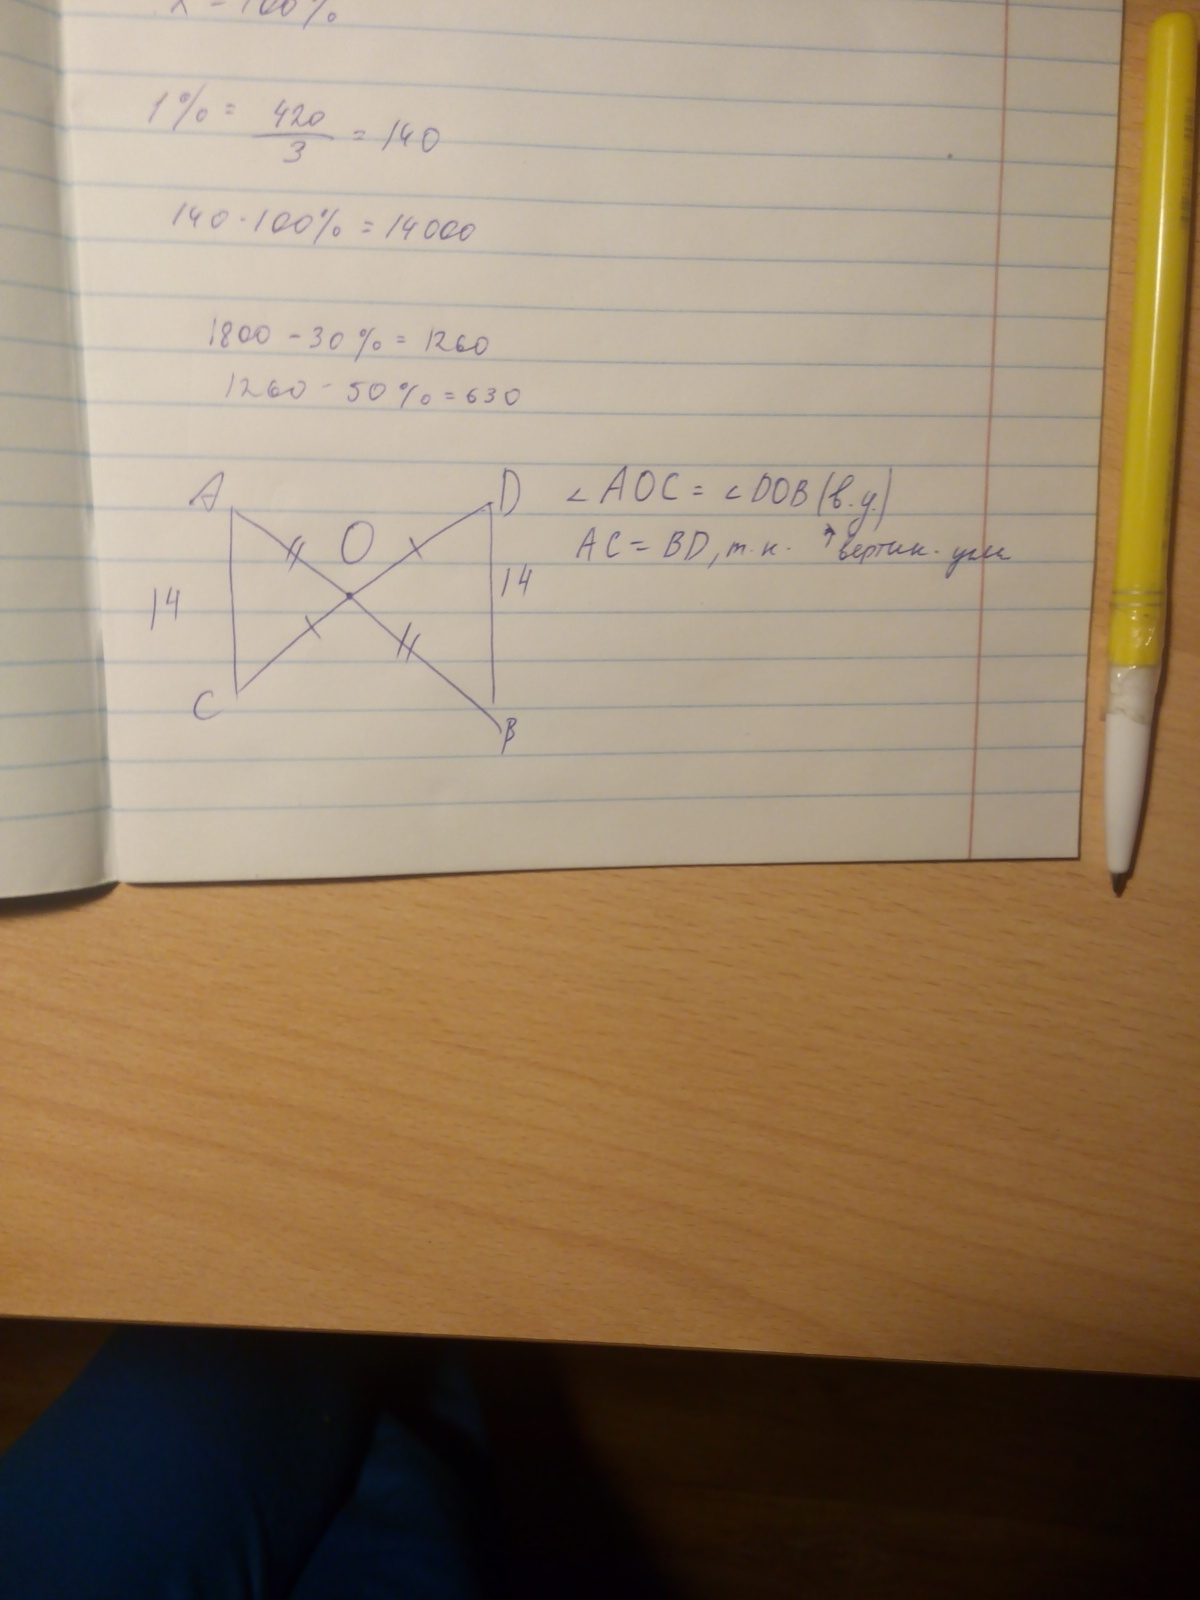 x - 100%
1% = 420/3 = 140
140 · 100% = 14000
1800 - 30% = 1260
1260 - 50% = 630
A D
O
14 14
C B
∠AOC = ∠DOB (в.у.)
AC = BD, т.к. ↑ вертик. углы